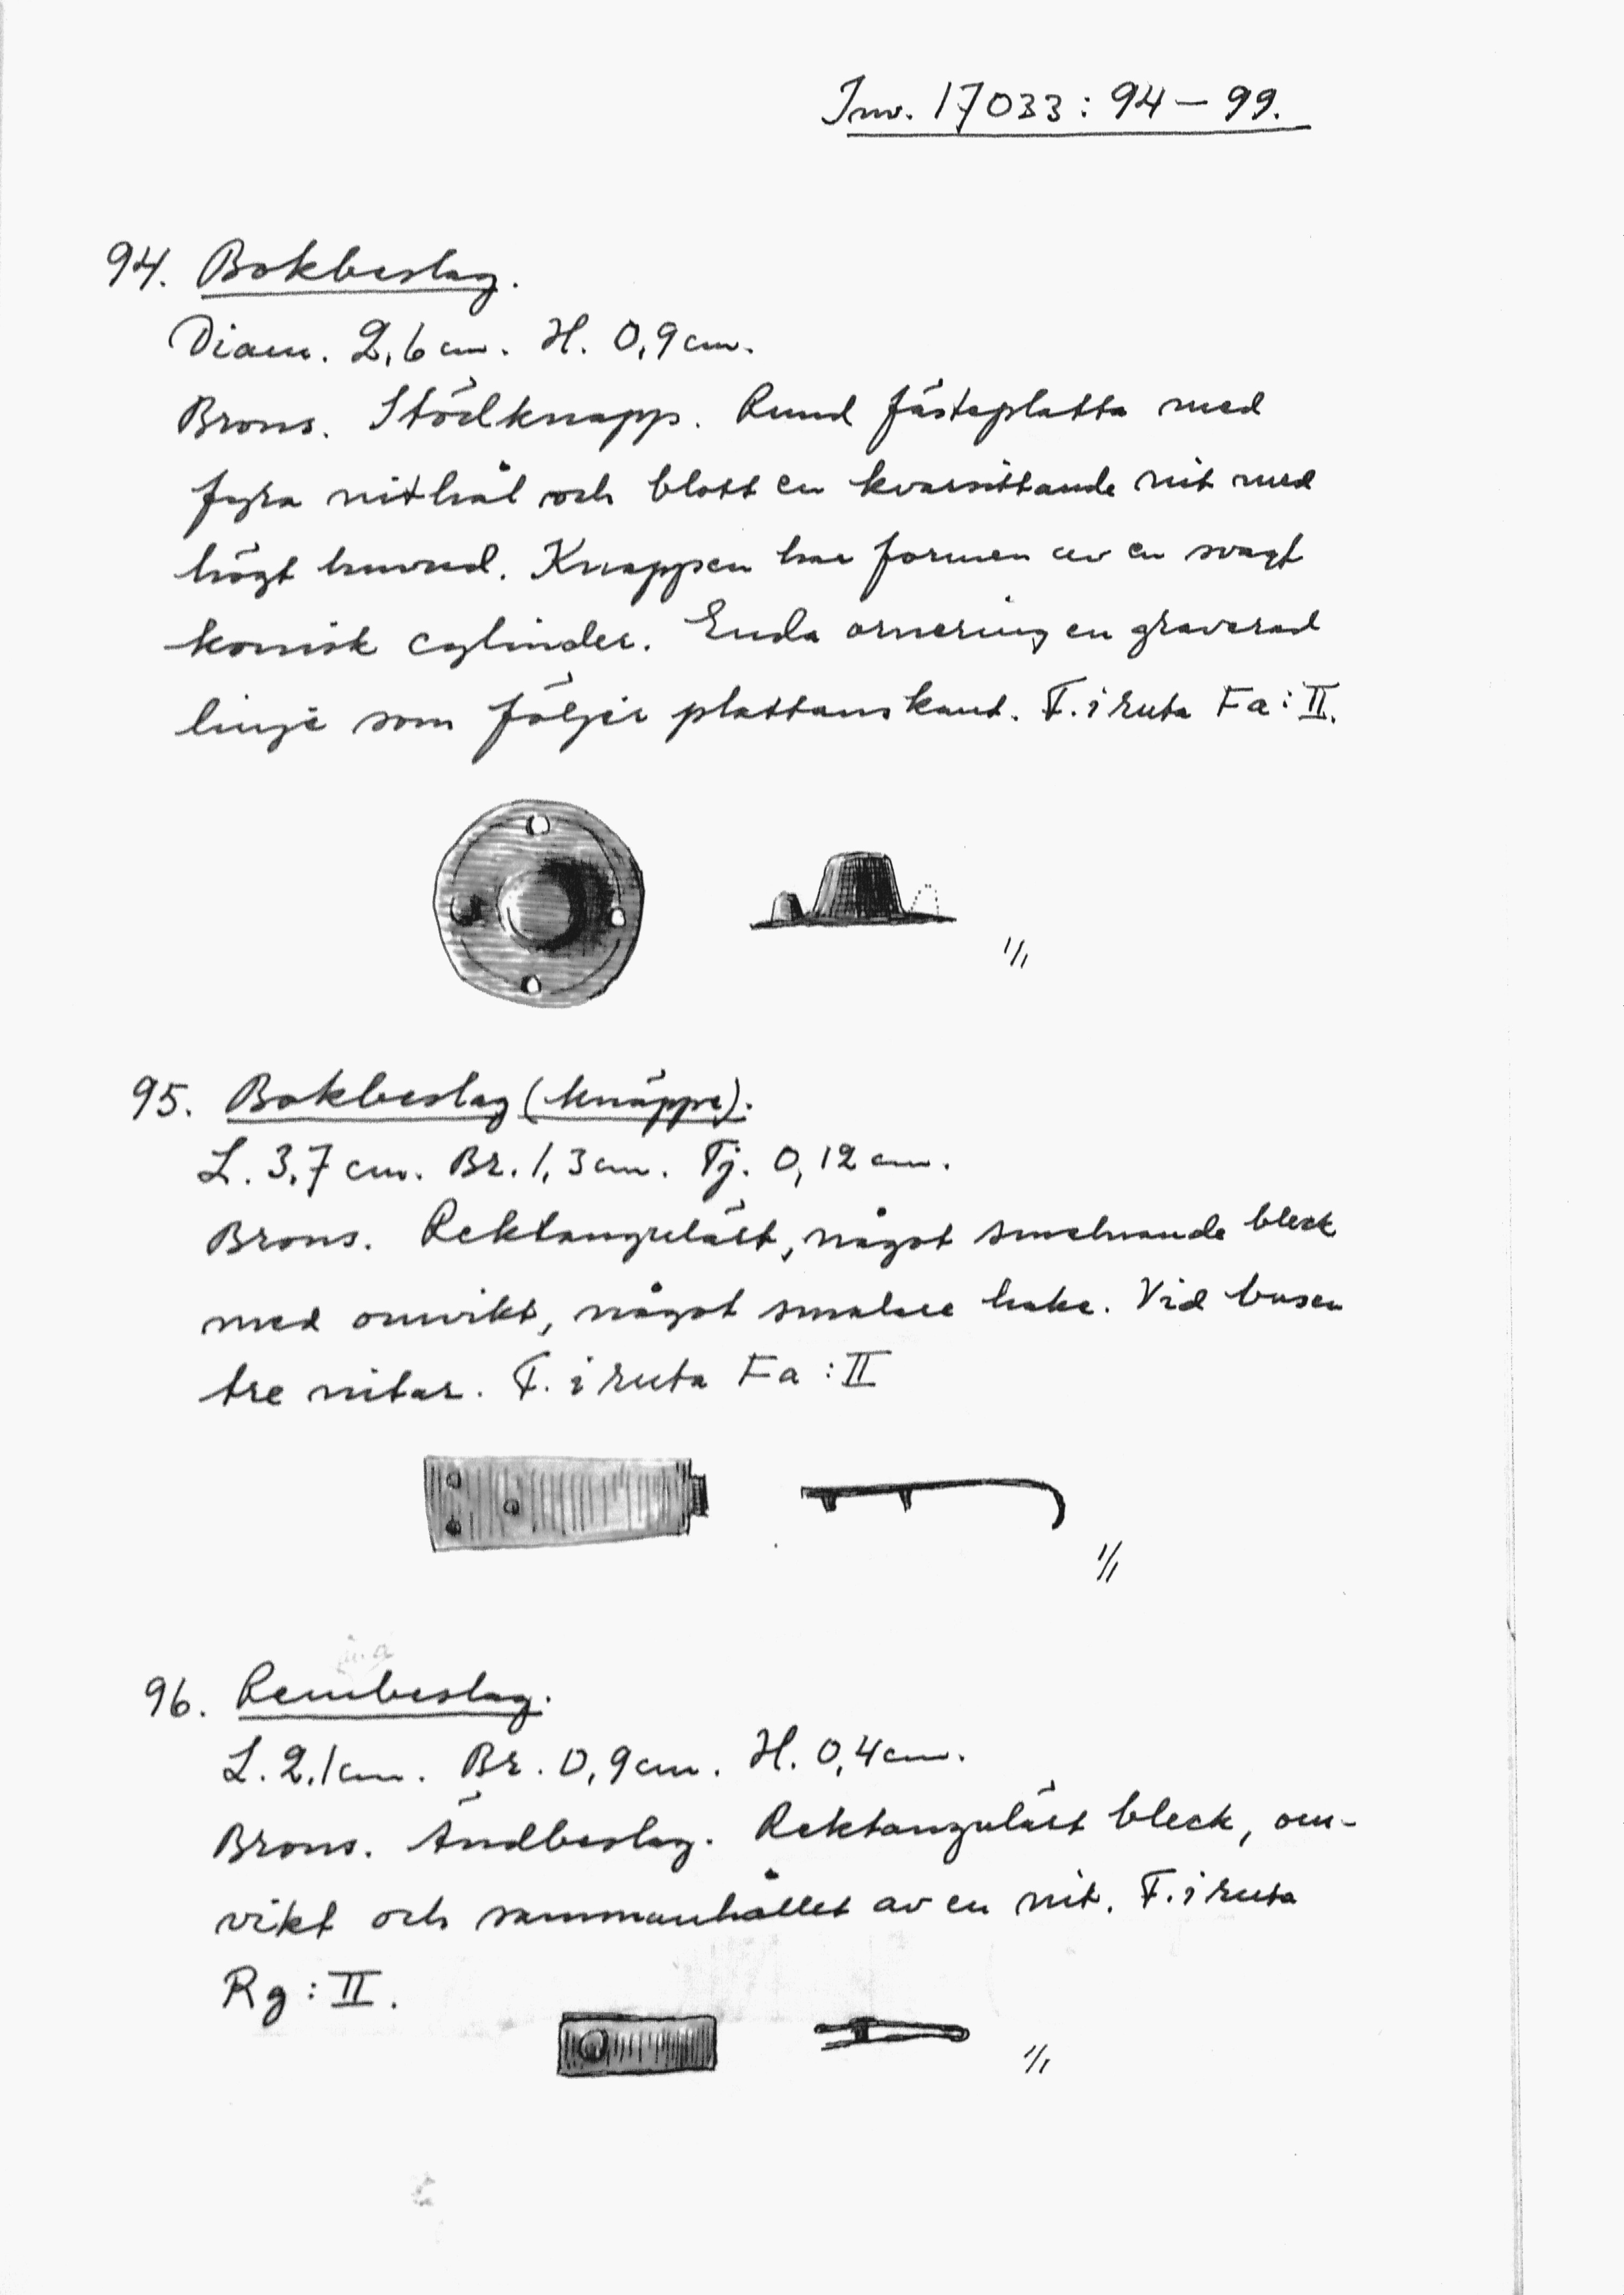 Inv. 17033:94–99.
94. Bokbeslag.
Diam. 2,6 cm. H. 0,9 cm.
Brons. Stödknapp. Rund fästeplatta med
fyra nithål och blott en kvarsittande nit med
högt huvud. Knappen har formen av en svagt
konisk cylinder. Enda ornering en graverad
linje som följer plattans kant. F. i ruta Fa:II.
1/1
95. Bokbeslag (knäppe).
L. 3,7 cm. Br. 1,3 cm. Tj. 0,12 cm.
Brons. Rektangulärt, något smalnande bleck
med omvikt, något smalare hake. Vid basen
tre nitar. F. i ruta Fa:II
1/1
96. Rembeslag.
L. 2,1 cm. Br. 0,9 cm. H. 0,4 cm.
Brons. Ändbeslag. Rektangulärt bleck, om-
vikt och sammanhållet av en nit. F. i ruta
Rg:II.
1/1